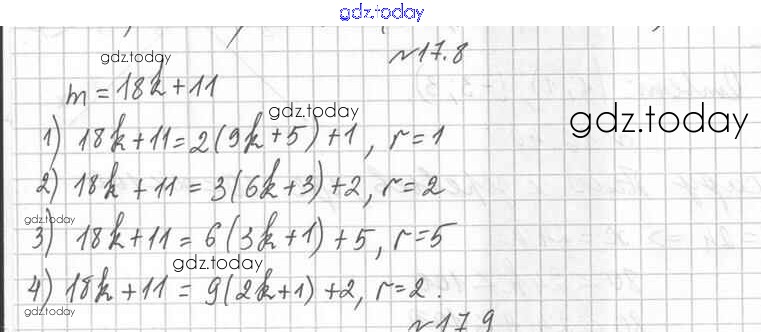 gdz.today
№17.8
gdz.today
m = 18k + 11
gdz.today
1) 18k + 11 = 2(9k + 5) + 1, r = 1
gdz.today
2) 18k + 11 = 3(6k + 3) + 2, r = 2
gdz.today
3) 18k + 11 = 6(3k + 1) + 5, r = 5
gdz.today
4) 18k + 11 = 9(2k + 1) + 2, r = 2.
gdz.today
№17.9